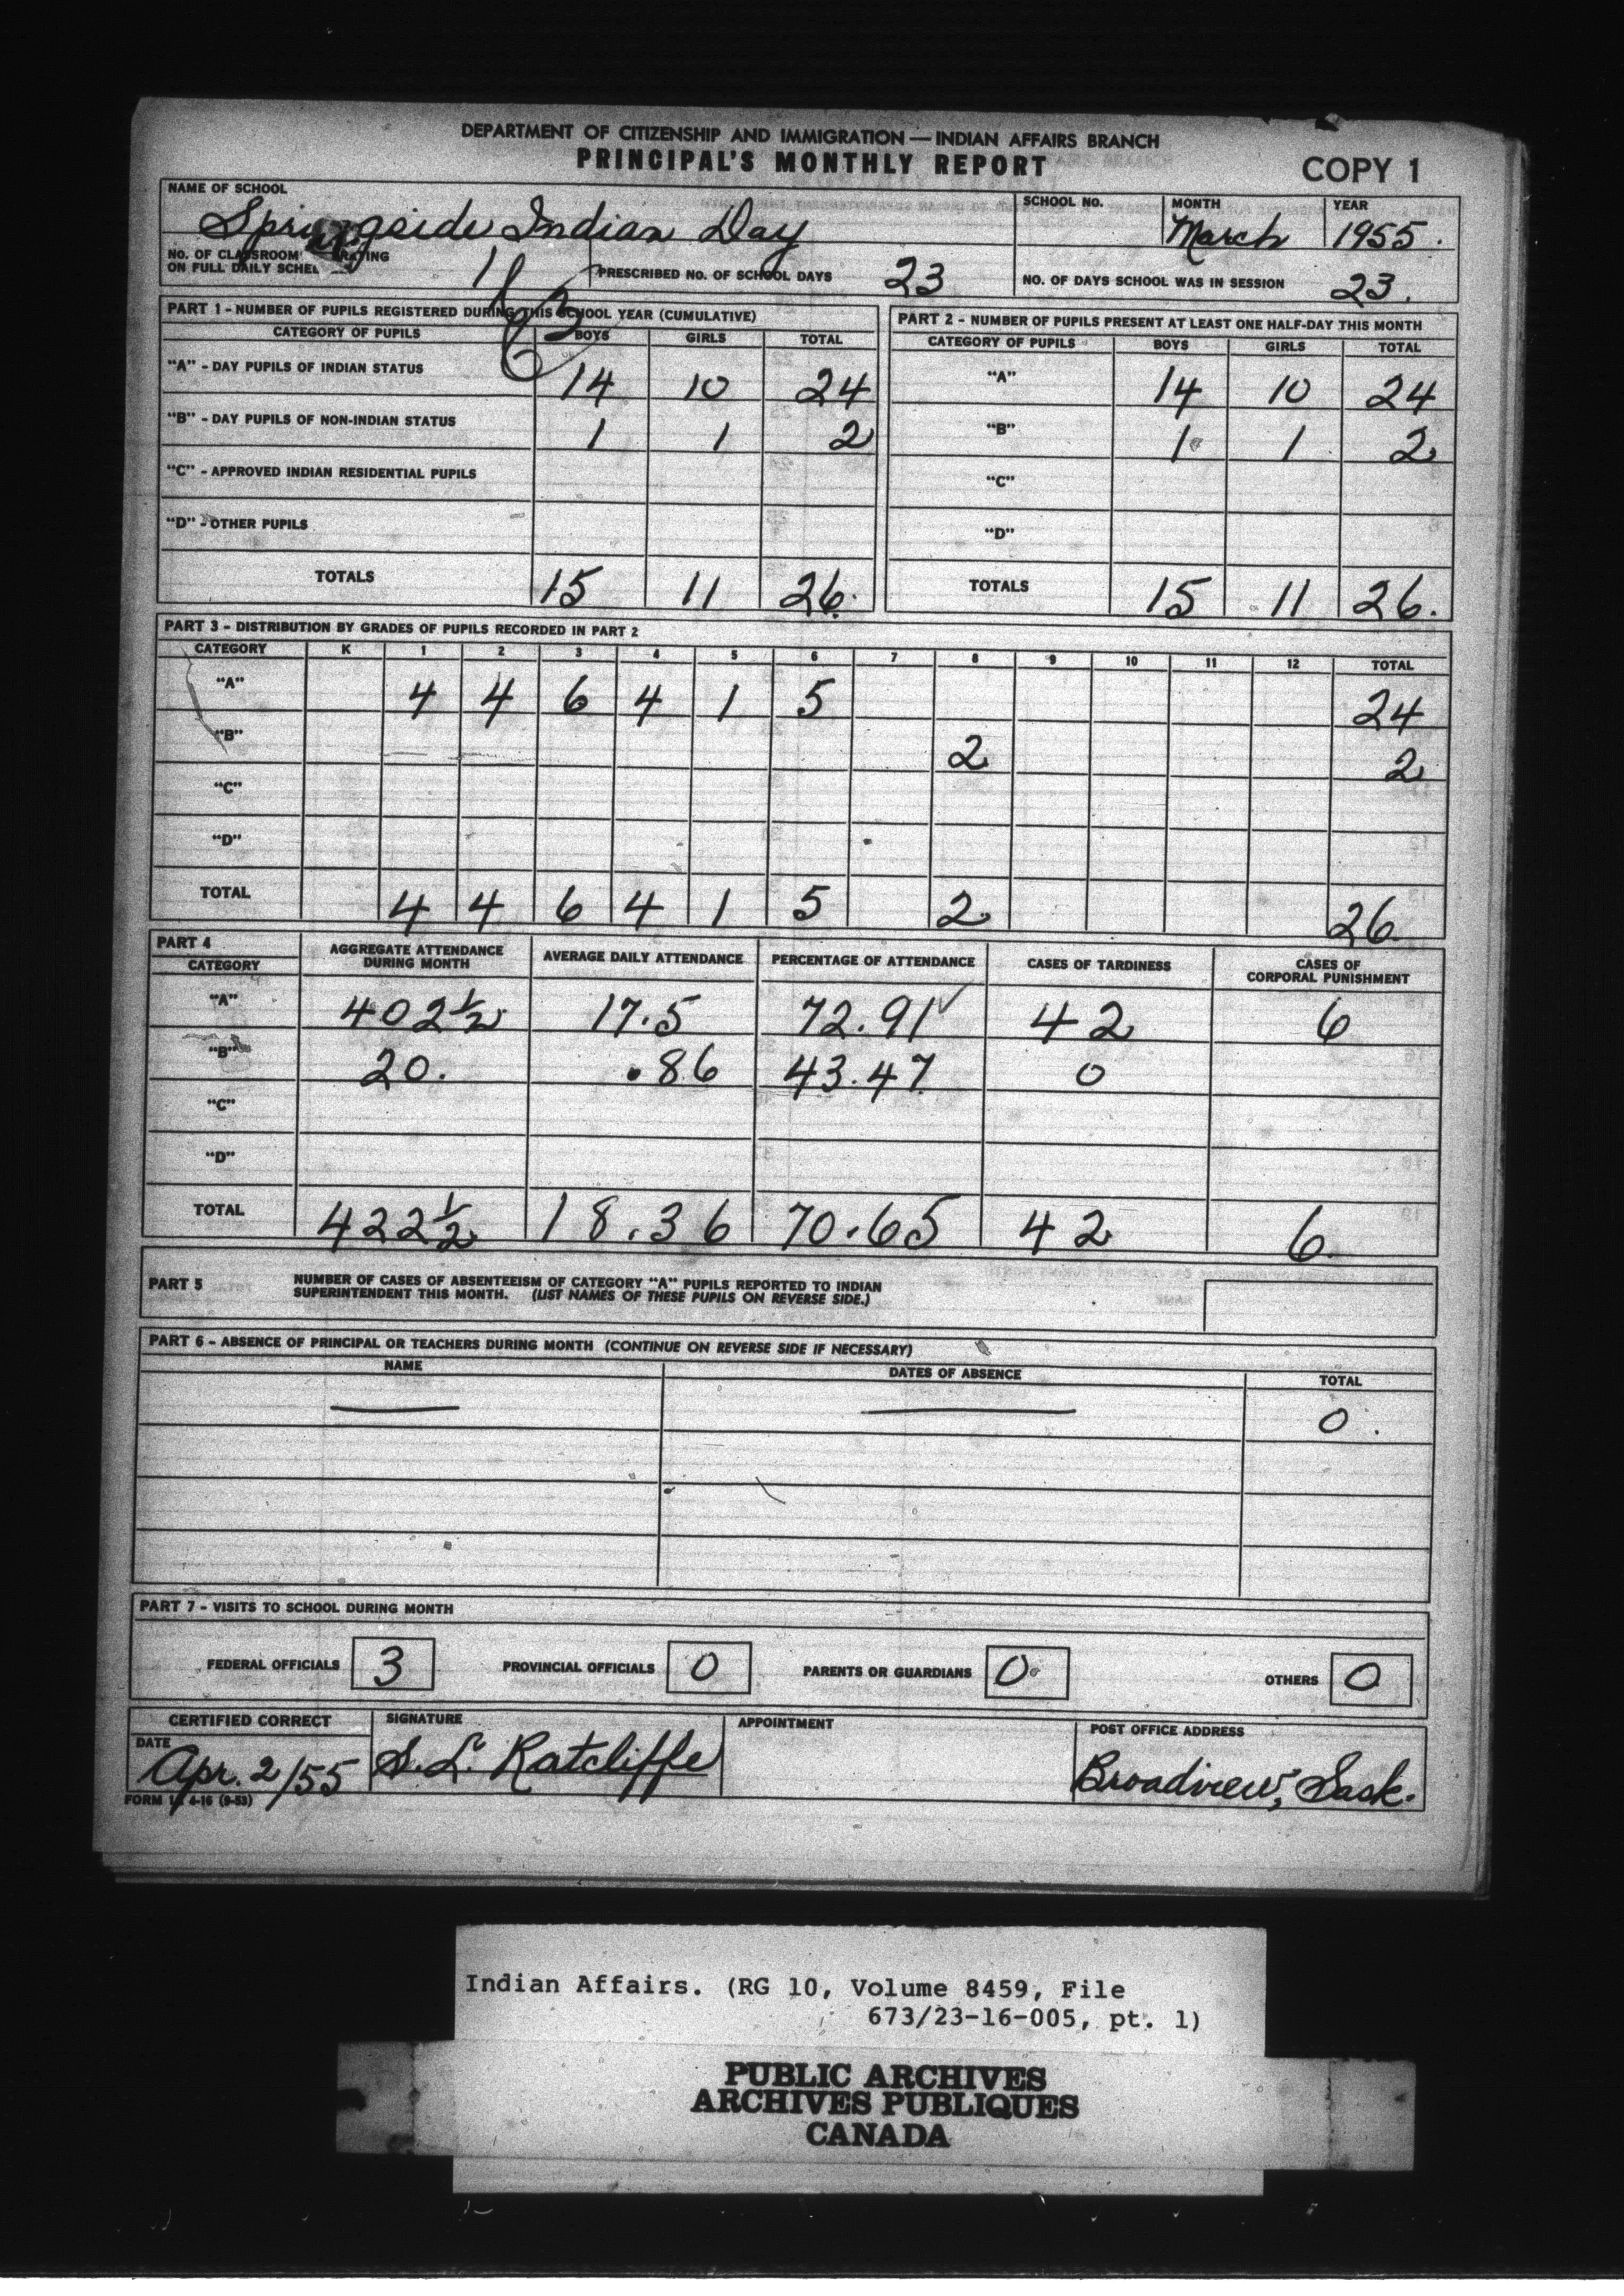 DEPARTMENT OF CITIZENSHIP AND IMMIGRATION — INDIAN AFFAIRS BRANCH
PRINCIPAL'S MONTHLY REPORT COPY 1
NAME OF SCHOOL SCHOOL NO. MONTH YEAR
Springside Indian Day March 1955.
NO. OF CLASSROOM RATING
ON FULL DAILY SCHE 1 PRESCRIBED NO. OF SCHOOL DAYS 23 NO. OF DAYS SCHOOL WAS IN SESSION 23.
PART 1 - NUMBER OF PUPILS REGISTERED DURING THIS SCHOOL YEAR (CUMULATIVE)
CATEGORY OF PUPILS BOYS GIRLS TOTAL
"A" - DAY PUPILS OF INDIAN STATUS 14 10 24
"B" - DAY PUPILS OF NON-INDIAN STATUS 1 1 2
"C" - APPROVED INDIAN RESIDENTIAL PUPILS
"D" - OTHER PUPILS
TOTALS 15 11 26.
PART 2 - NUMBER OF PUPILS PRESENT AT LEAST ONE HALF-DAY THIS MONTH
CATEGORY OF PUPILS BOYS GIRLS TOTAL
"A" 14 10 24
"B" 1 1 2
"C"
"D"
TOTALS 15 11 26.
PART 3 - DISTRIBUTION BY GRADES OF PUPILS RECORDED IN PART 2
CATEGORY K 1 2 3 4 5 6 7 8 9 10 11 12 TOTAL
"A" 4 4 6 4 1 5 24
"B" 2 2
"C"
"D"
TOTAL 4 4 6 4 1 5 2 26
PART 4
CATEGORY AGGREGATE ATTENDANCE DURING MONTH AVERAGE DAILY ATTENDANCE PERCENTAGE OF ATTENDANCE CASES OF TARDINESS CASES OF CORPORAL PUNISHMENT
"A" 402½ 17.5 72.91 ✓ 42 6
"B" 20. .86 43.47 0
"C"
"D"
TOTAL 422½ 18.36 70.65 42 6
PART 5 NUMBER OF CASES OF ABSENTEEISM OF CATEGORY "A" PUPILS REPORTED TO INDIAN
SUPERINTENDENT THIS MONTH. (LIST NAMES OF THESE PUPILS ON REVERSE SIDE.)
PART 6 - ABSENCE OF PRINCIPAL OR TEACHERS DURING MONTH (CONTINUE ON REVERSE SIDE IF NECESSARY)
NAME DATES OF ABSENCE TOTAL
— — 0.
PART 7 - VISITS TO SCHOOL DURING MONTH
FEDERAL OFFICIALS 3 PROVINCIAL OFFICIALS 0 PARENTS OR GUARDIANS 0 OTHERS 0
CERTIFIED CORRECT SIGNATURE APPOINTMENT POST OFFICE ADDRESS
DATE
Apr. 2/55 S. L. Ratcliffe Broadview, Sask.
FORM 4-16 (9-53)
Indian Affairs. (RG 10, Volume 8459, File
673/23-16-005, pt. 1)
PUBLIC ARCHIVES
ARCHIVES PUBLIQUES
CANADA